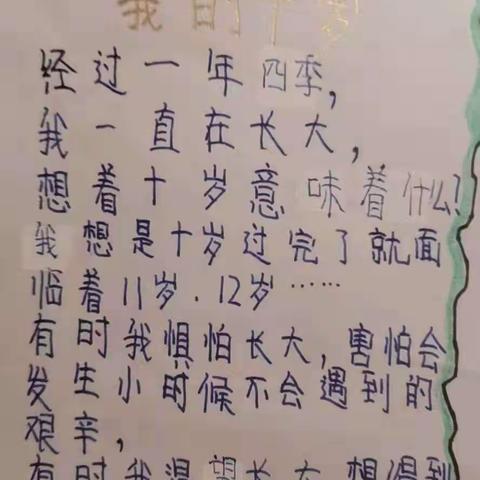 我的十岁
经过一年四季,
我一直在长大,
想着十岁意味着什么?
我想是十岁过完了就面
临着11岁.12岁……
有时我惧怕长大,害怕会
发生小时候不会遇到的
艰辛,
有时我渴望长大,想得到